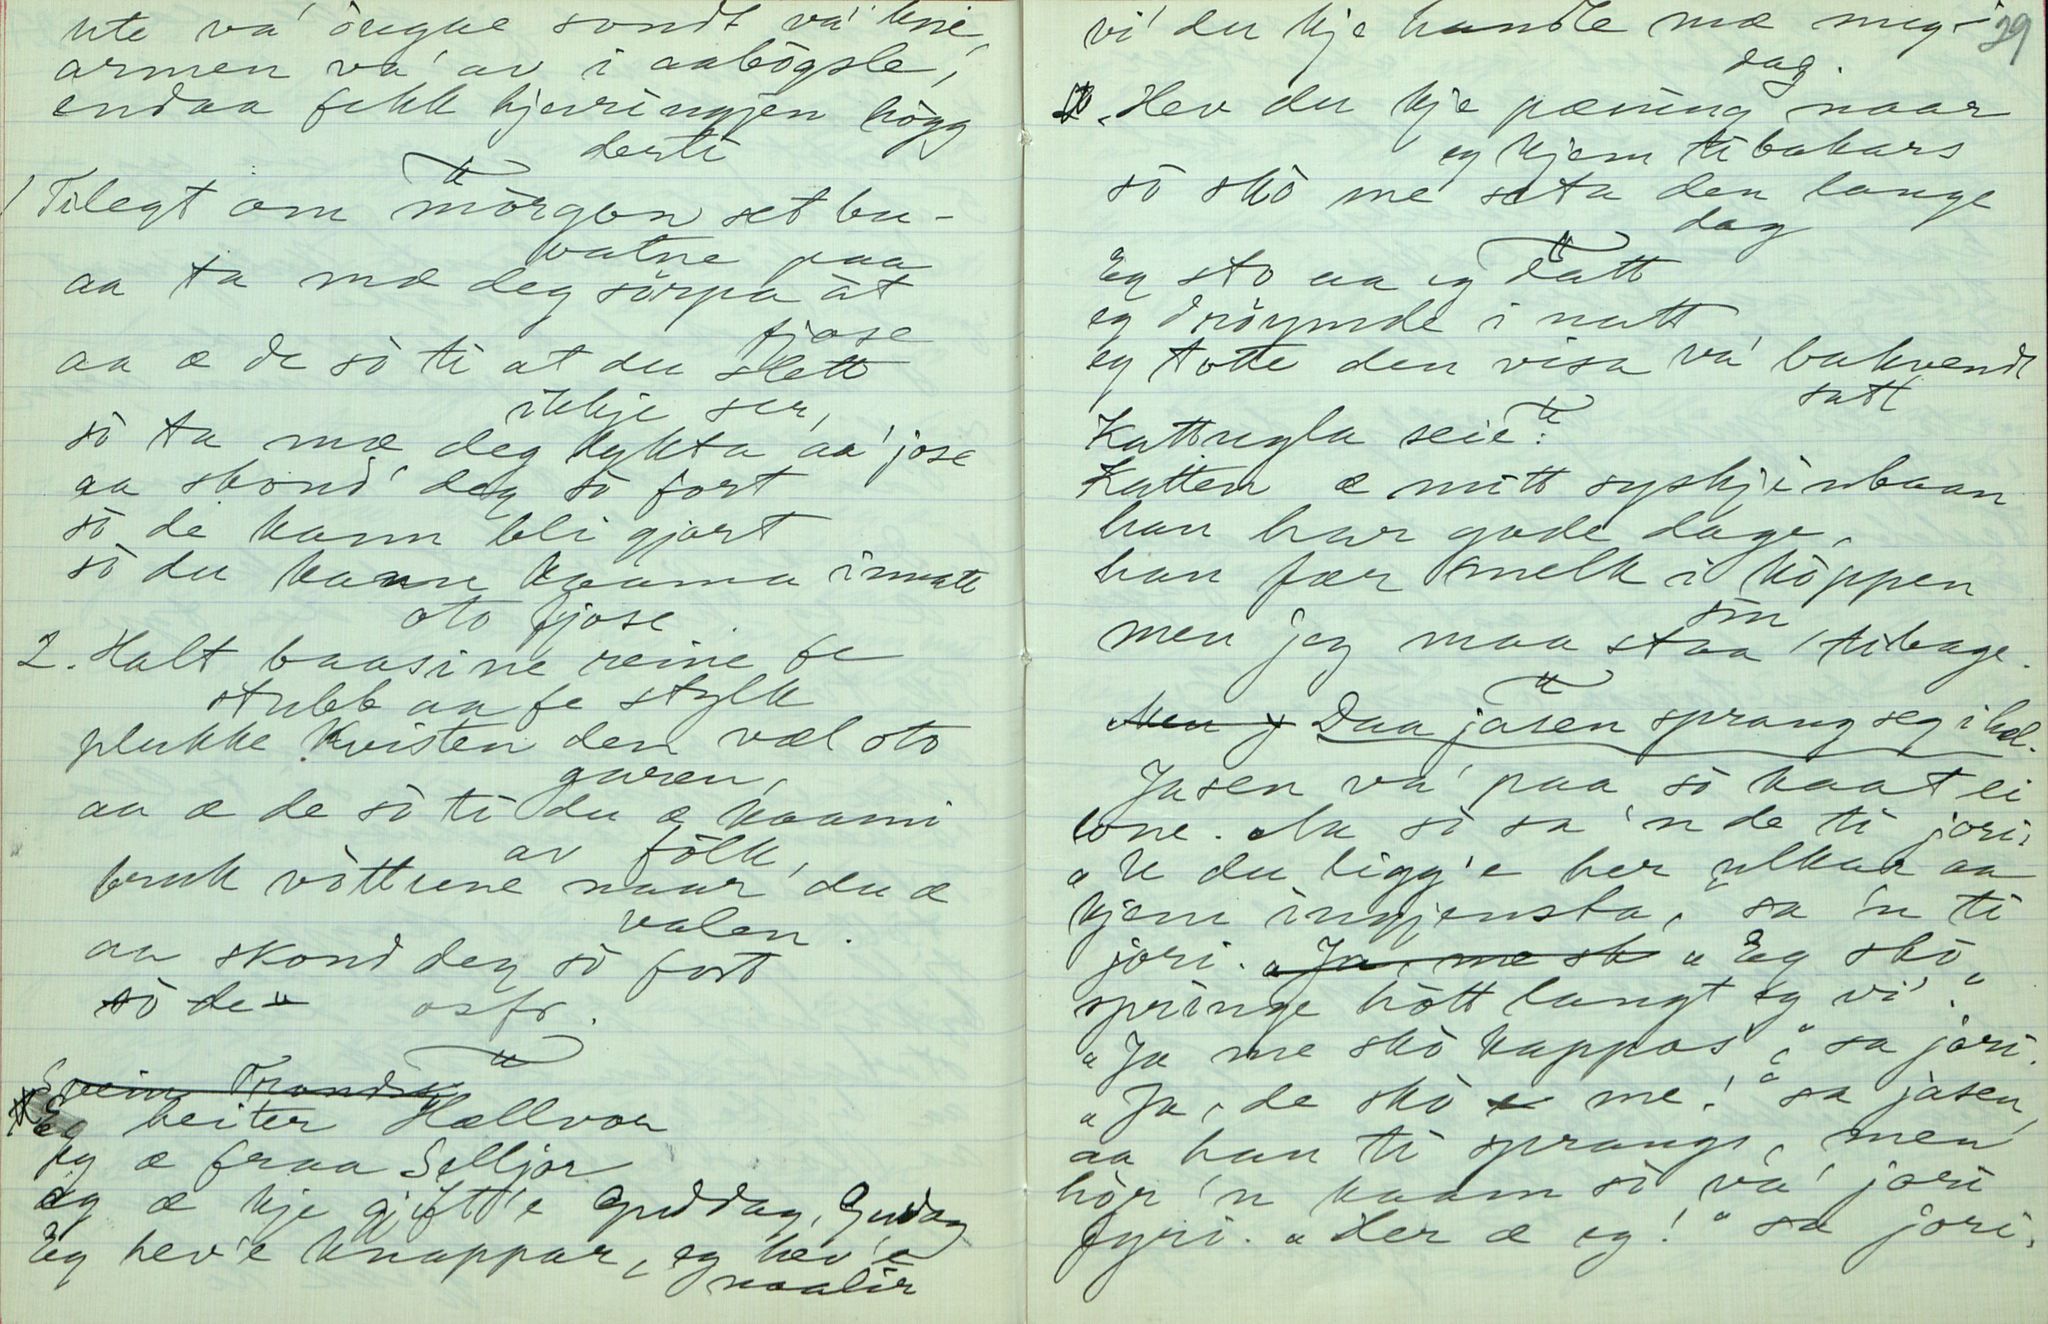 ute va' öugne sondt va' kne,
armen va' av i aabögsle,
endaa fekk kjerringjen högg
derti
1 Tilegt om mörgon set bu-
vatne paa
aa ta mæ deg sörpa åt
fjose
aa æ de sò ti at du slett
ikkje ser,
sò ta mæ deg lykta aa' jose
aa skond' deg sò fort
sò de kann bli gjort
sò du kann kaama innatt
oto fjose
2. Halt baasine reine fe
stubb aa fe stylk
plukke kvisten den væl oto
garen,
aa æ de sò ti du æ kaami
av fölk,
bruk vöttune naar du æ
valen.
aa skond deg sò fort
sò de " osfr.
Svein Trondsen
Eg heiter Hællvor
eg æ fraa Selljor
eg æ kje gift'e Guddag, Gudag
Eg hev'e knappar, eg hev'e
naalir
29
vi' du kje handle mæ meg i
dag.
„Hev du kje pæning naar
eg kjem tibakars
sò skò me seta den lange
dag
Eg sto aa eg datt
eg dröymde i natt
eg totte den visa va' bakvendt
satt
Kattugla seie:
Katten æ mitt syskjinbaan
han har gode dage,
han fær smelk i köppen
sin
men jeg maa staa tilbage.
Men j Daa jasen sprang seg ihæl.
Jasen va' paa sò kaat ei
lone. Aa sò sa 'n de ti jori:
„U du ligg'e her ulkah aa
kjem ingjensta," sa 'n ti
jori. „Ja, me sk „Eg skò
springe hòtt langt eg vi'."
„Ja me skò kappas'," sa jori.
„Ja, de skò e me!" sa jasen,
aa han ti sprangs, men
hòr 'n kaam sò va' jori
fyri. „der æ eg!" sa jori.